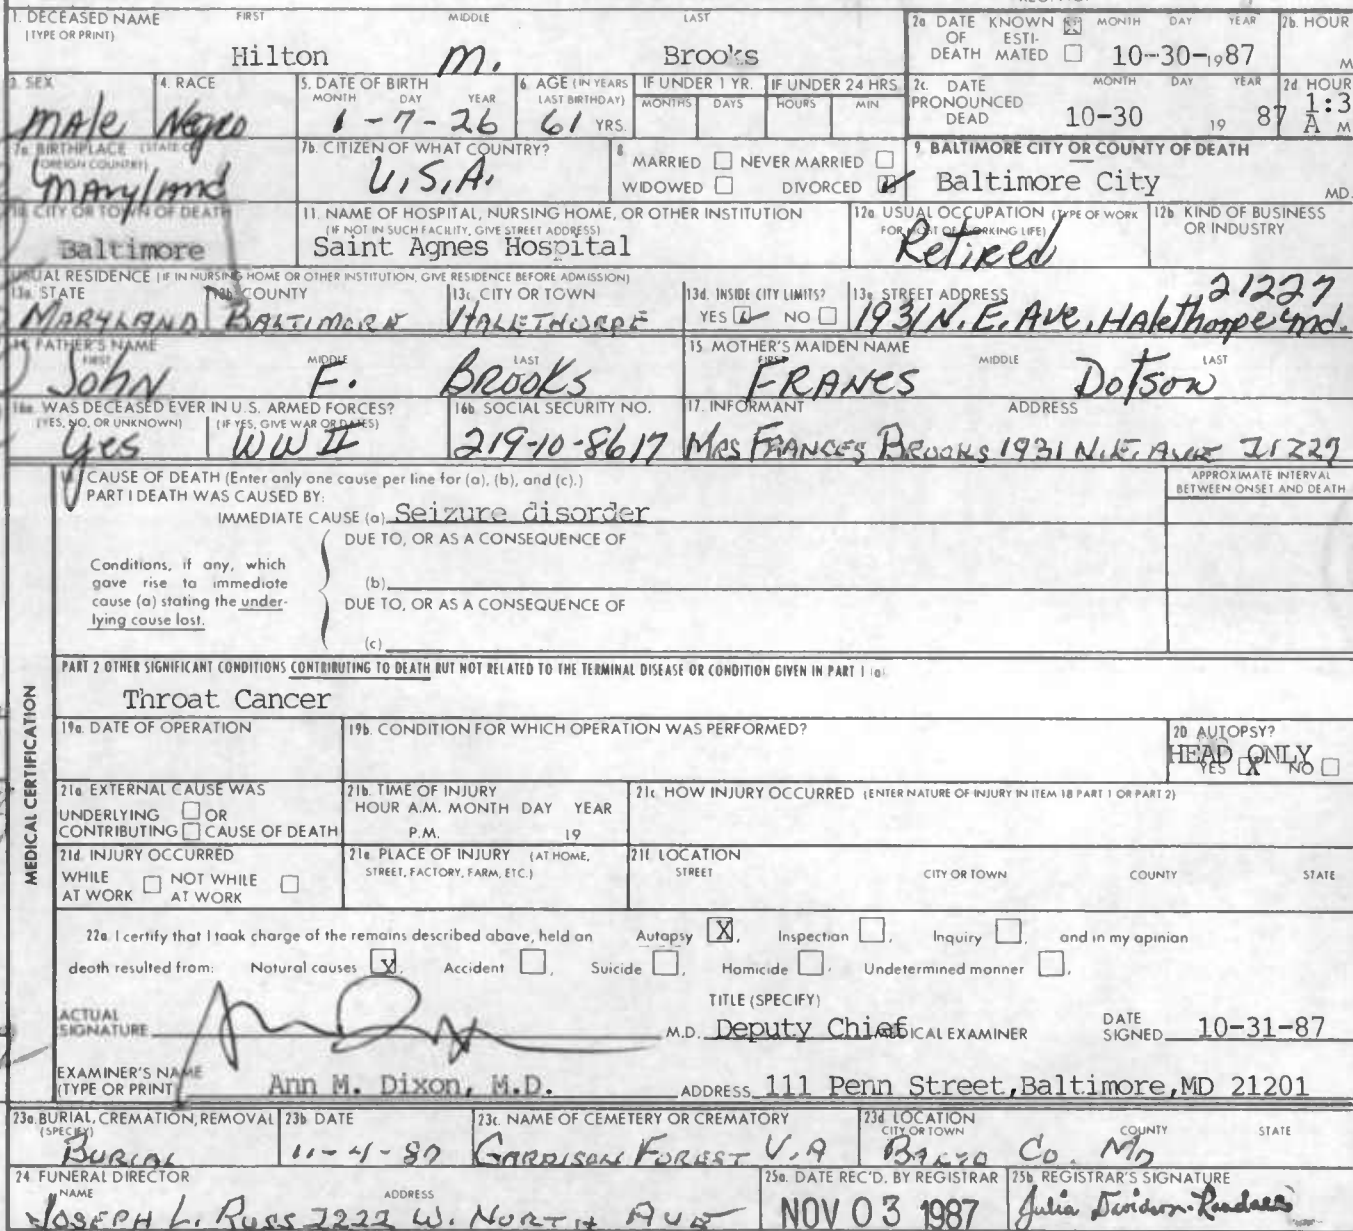 1. DECEASED NAME (TYPE OR PRINT) FIRST MIDDLE LAST
Hilton M. Brooks
2a DATE OF DEATH KNOWN ☒ ESTIMATED ☐ MONTH DAY YEAR
10-30-1987
2b. HOUR
M
3. SEX
Male
4. RACE
Negro
5. DATE OF BIRTH MONTH DAY YEAR
1-7-26
6 AGE (IN YEARS LAST BIRTHDAY)
61 YRS.
IF UNDER 1 YR. MONTHS DAYS
IF UNDER 24 HRS. HOURS MIN
2c. DATE PRONOUNCED DEAD MONTH DAY YEAR
10-30 19 87
2d HOUR
1:3
A M
7a BIRTHPLACE (STATE OR FOREIGN COUNTRY)
Maryland
7b. CITIZEN OF WHAT COUNTRY?
U.S.A.
8 MARRIED ☐ NEVER MARRIED ☐
WIDOWED ☐ DIVORCED ☑
9. BALTIMORE CITY OR COUNTY OF DEATH
Baltimore City MD.
10. CITY OR TOWN OF DEATH
Baltimore
11. NAME OF HOSPITAL, NURSING HOME, OR OTHER INSTITUTION
(IF NOT IN SUCH FACILITY, GIVE STREET ADDRESS)
Saint Agnes Hospital
12a USUAL OCCUPATION (TYPE OF WORK FOR MOST OF WORKING LIFE)
Retired
12b KIND OF BUSINESS OR INDUSTRY
USUAL RESIDENCE (IF IN NURSING HOME OR OTHER INSTITUTION, GIVE RESIDENCE BEFORE ADMISSION)
13a. STATE
MARYLAND
13b. COUNTY
BALTIMORE
13c. CITY OR TOWN
HALETHORPE
13d. INSIDE CITY LIMITS?
YES ☑ NO ☐
13e STREET ADDRESS
21227
1931 N.E. Ave. Halethorpe Md.
14 FATHER'S NAME FIRST MIDDLE LAST
John F. Brooks
15 MOTHER'S MAIDEN NAME FIRST MIDDLE LAST
FRANES Dotson
16a. WAS DECEASED EVER IN U.S. ARMED FORCES?
(YES, NO, OR UNKNOWN) (IF YES, GIVE WAR OR DATES)
Yes WW II
16b SOCIAL SECURITY NO.
219-10-8617
17. INFORMANT ADDRESS
MRS FRANCES BROOKS 1931 N.E. AVE 21227
CAUSE OF DEATH (Enter only one cause per line for (a), (b), and (c).)
PART I DEATH WAS CAUSED BY:
IMMEDIATE CAUSE (a) Seizure disorder
APPROXIMATE INTERVAL BETWEEN ONSET AND DEATH
DUE TO, OR AS A CONSEQUENCE OF
Conditions, if any, which gave rise to immediate cause (a) stating the underlying cause last.
(b)
DUE TO, OR AS A CONSEQUENCE OF
(c)
PART 2 OTHER SIGNIFICANT CONDITIONS CONTRIBUTING TO DEATH BUT NOT RELATED TO THE TERMINAL DISEASE OR CONDITION GIVEN IN PART 1 (a)
Throat Cancer
MEDICAL CERTIFICATION
19a. DATE OF OPERATION
19b. CONDITION FOR WHICH OPERATION WAS PERFORMED?
20 AUTOPSY?
HEAD ONLY
YES ☒ NO ☐
21a EXTERNAL CAUSE WAS
UNDERLYING ☐ OR
CONTRIBUTING ☐ CAUSE OF DEATH
21b. TIME OF INJURY
HOUR A.M. MONTH DAY YEAR
P.M. 19
21c HOW INJURY OCCURRED (ENTER NATURE OF INJURY IN ITEM 18 PART 1 OR PART 2)
21d INJURY OCCURRED
WHILE AT WORK ☐ NOT WHILE AT WORK ☐
21e PLACE OF INJURY (AT HOME, STREET, FACTORY, FARM, ETC.)
21f LOCATION
STREET CITY OR TOWN COUNTY STATE
22a I certify that I took charge of the remains described above, held an Autopsy ☒, Inspection ☐, Inquiry ☐, and in my opinion
death resulted from: Natural causes ☒, Accident ☐, Suicide ☐, Homicide ☐. Undetermined manner ☐.
ACTUAL SIGNATURE M.D.
TITLE (SPECIFY)
Deputy Chief MEDICAL EXAMINER
DATE SIGNED 10-31-87
EXAMINER'S NAME (TYPE OR PRINT) Ann M. Dixon, M.D.
ADDRESS 111 Penn Street,Baltimore,MD 21201
23a. BURIAL, CREMATION, REMOVAL (SPECIFY)
BURIAL
23b DATE
11-4-87
23c. NAME OF CEMETERY OR CREMATORY
GARRISON FOREST V.A
23d LOCATION CITY OR TOWN COUNTY STATE
BALTO CO. MD
24 FUNERAL DIRECTOR
NAME ADDRESS
JOSEPH L. RUSS 2222 W. NORTH AVE
25a. DATE REC'D. BY REGISTRAR
NOV 03 1987
25b REGISTRAR'S SIGNATURE
Julia Davidson-Randall